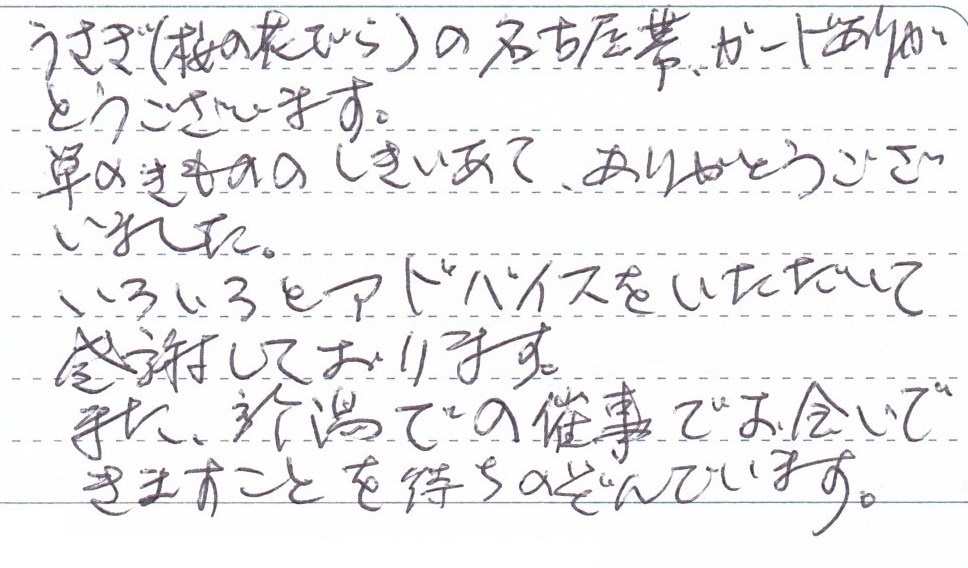 うさぎ(桜の花びら)の名古屋帯、ガードありが
とうございます。
単のきものの しきいあて、ありがとうござ
いました。
いろいろとアドバイスをいただいて
感謝しております。
また、新潟での催事でお会いで
きますことを待ちのぞんでいます。